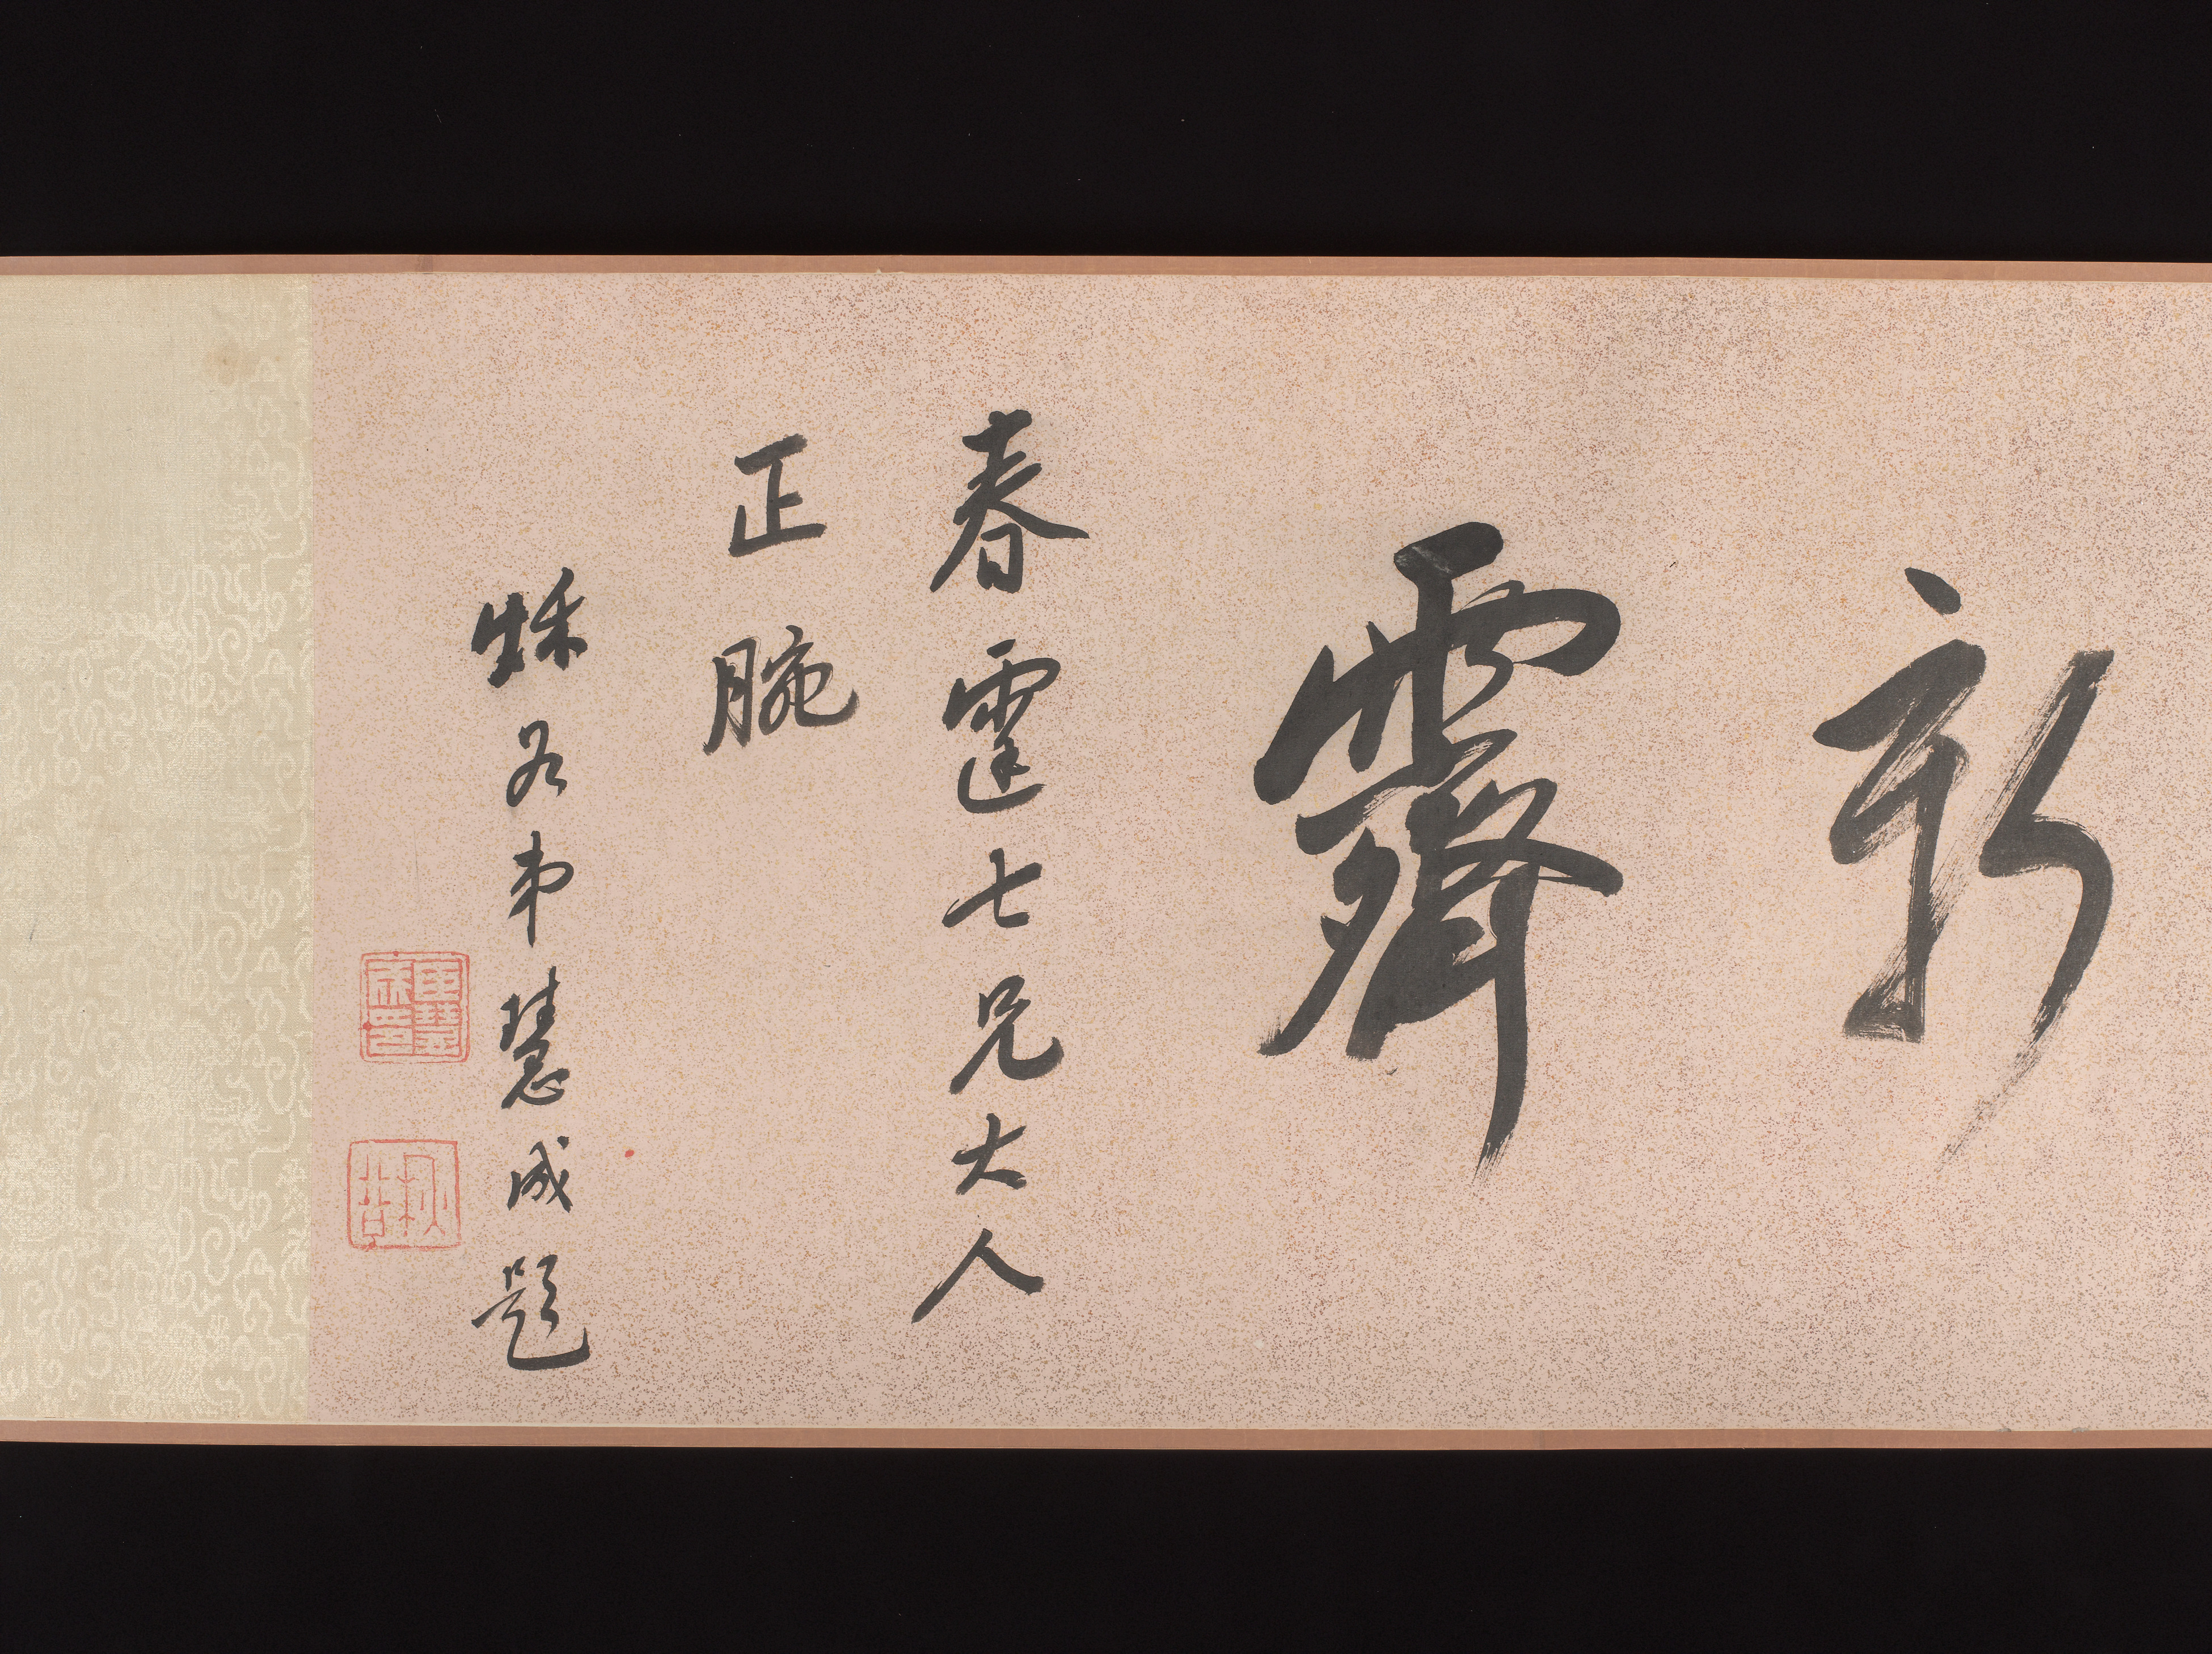 新霽
春霆七兄大人
正腕
弟慧成題